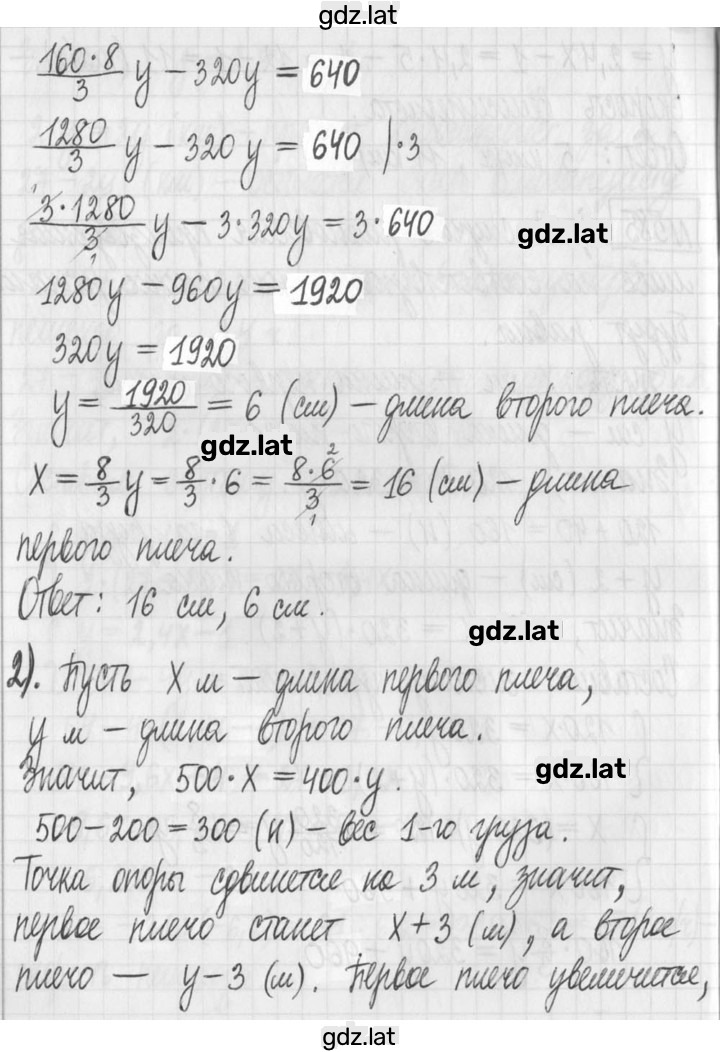 gdz.lat
160·8/3 y − 320y = 640
1280/3 y − 320 y = 640 |·3
3·1280/3 y − 3·320y = 3·640
gdz.lat
1280y − 960y = 1920
320y = 1920
y = 1920/320 = 6 (см) − длина второго плеча.
gdz.lat
x = 8/3 y = 8/3 · 6 = 8·6/3 = 16 (см) − длина
первого плеча.
Ответ: 16 см, 6 см.
gdz.lat
2). Пусть x м − длина первого плеча,
y м − длина второго плеча.
gdz.lat
Значит, 500·x = 400·y.
500−200 = 300 (Н) − вес 1-го груза.
Точка опоры сдвинется на 3 м, значит,
первое плечо станет x+3 (м), а второе
плечо — y−3 (м). Первое плечо увеличится,
gdz.lat